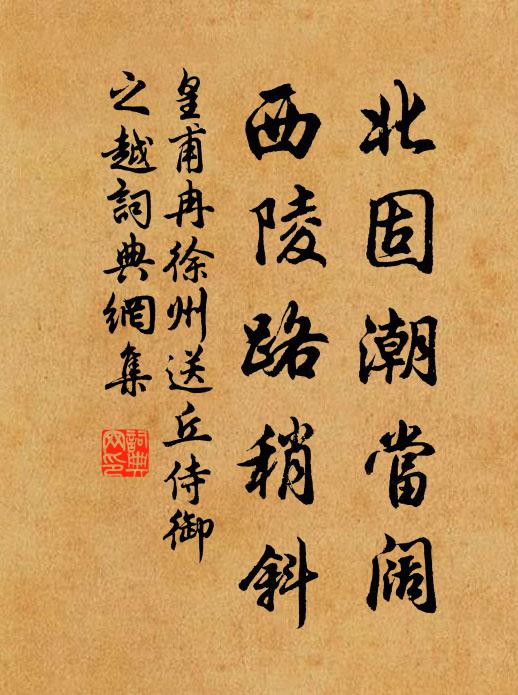 北固潮當闊
西陵路稍斜
皇甫冉徐州送丘侍御
之越詞典網集
詞典網印